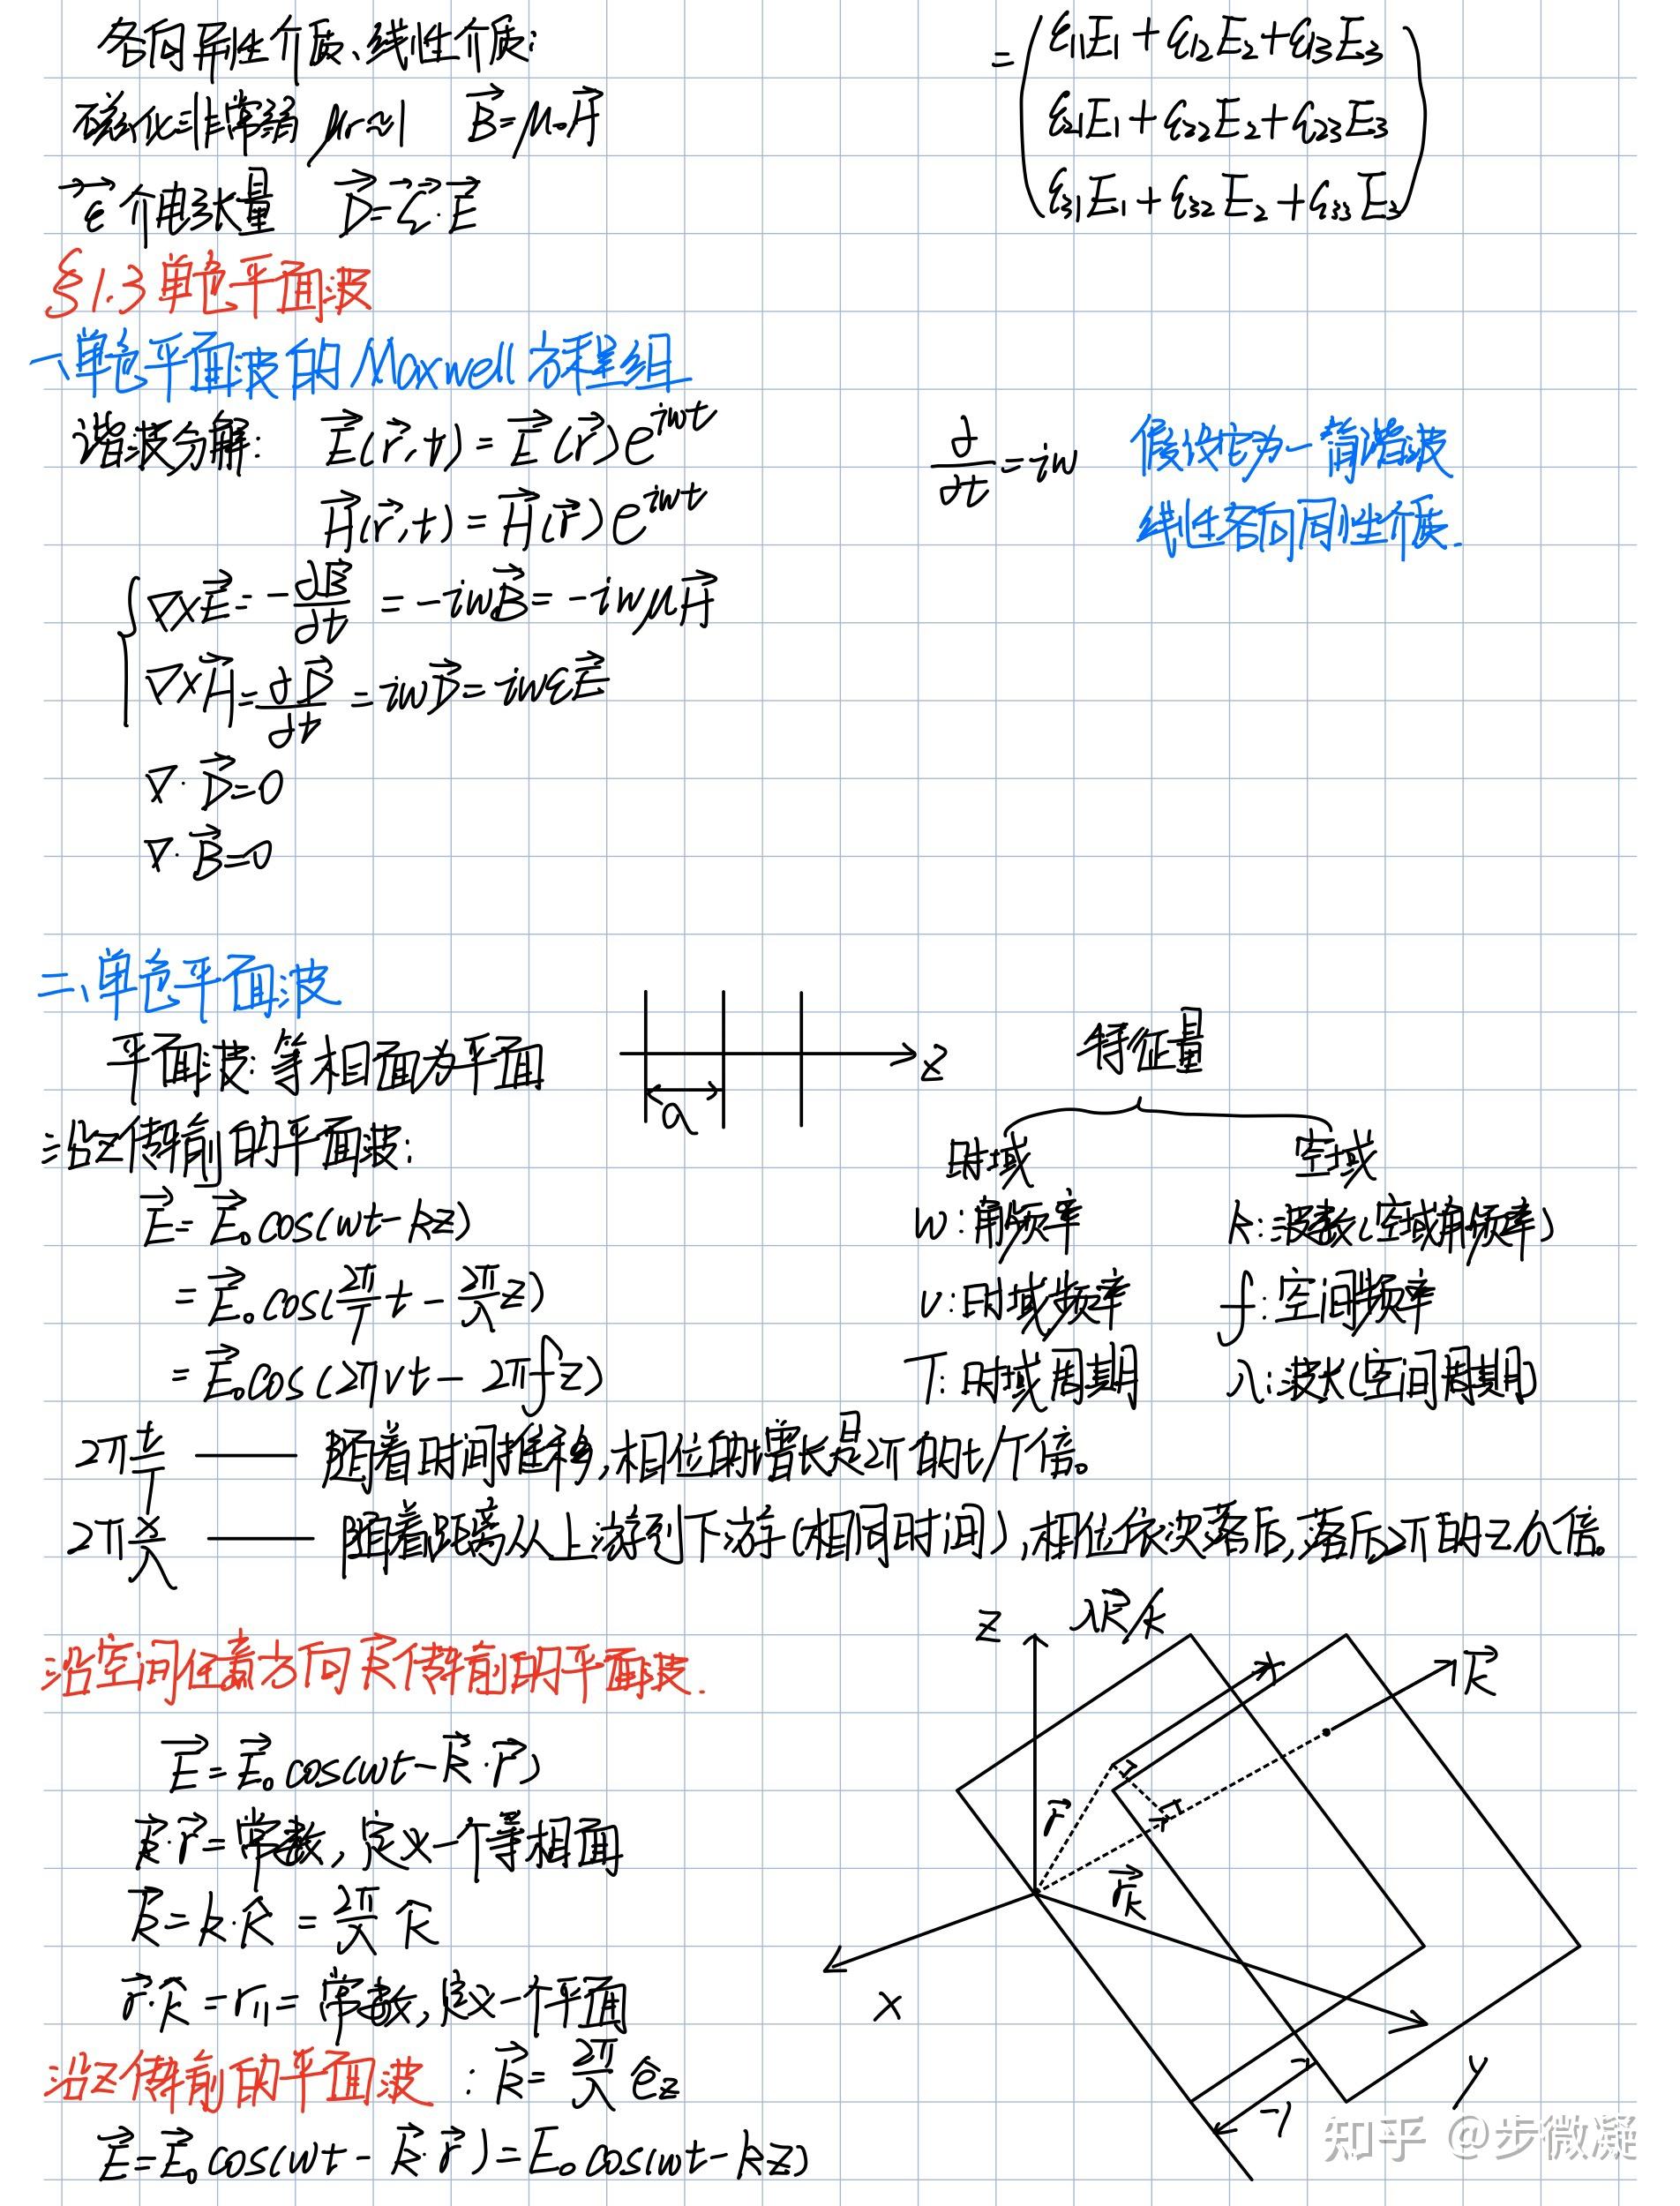 各向异性介质、线性介质:
磁化非常弱 μr≈1 B⃗=μ₀H⃗
ε⃗⃗ 介电张量 D⃗=ε⃗⃗·E⃗
=(ε₁₁E₁+ε₁₂E₂+ε₁₃E₃
ε₂₁E₁+ε₂₂E₂+ε₂₃E₃
ε₃₁E₁+ε₃₂E₂+ε₃₃E₃)
§1.3 单色平面波
一、单色平面波的Maxwell方程组
谐波分解: E⃗(r⃗,t)=E⃗(r⃗)e^{iwt}
H⃗(r⃗,t)=H⃗(r⃗)e^{iwt}
∂/∂t=iw
假设它为一简谐波
线性各向同性介质.
∇×E⃗=-∂B⃗/∂t=-iwB⃗=-iwμH⃗
∇×H⃗=∂D⃗/∂t=iwD⃗=iwεE⃗
∇·D⃗=0
∇·B⃗=0
二、单色平面波
平面波:等相面为平面
z
a
沿z传输的平面波:
E⃗=E⃗₀cos(wt-kz)
=E⃗₀cos(2π/T t-2π/λ z)
=E⃗₀cos(2πνt-2πfz)
特征量
时域 空域
w:角频率 k:波数(空域角频率)
ν:时域频率 f:空间频率
T:时域周期 λ:波长(空间周期)
2π t/T —— 随着时间推移,相位的增长是2π的t/T倍。
2π x/λ —— 随着距离从上游到下游(相同时间),相位依次落后,落后2π的z/λ倍。
沿空间任意方向k⃗传输的平面波.
E⃗=E⃗₀cos(wt-k⃗·r⃗)
k⃗·r⃗=常数,定义一个等相面
k⃗=k·k̂=2π/λ k̂
r⃗·k̂=r∥=常数,定义一个平面
沿z传输的平面波:k⃗=2π/λ êz
E⃗=E⃗₀cos(wt-k⃗·r⃗)=E₀cos(wt-kz)
z
λk⃗/k
k⃗
r⃗
r⃗k
x
y
知乎 @步微凝